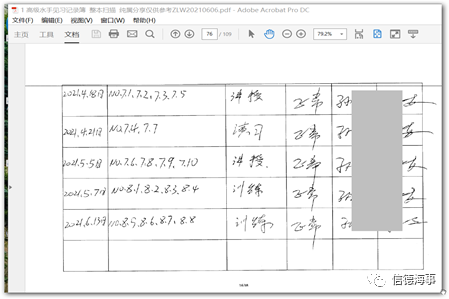 1.高级水手见习记录簿 整本扫描 纯属分享仅供参考ZLW20210606.pdf - Adobe Acrobat Pro DC
文件(F) 编辑(E) 视图(V) 窗口(W) 帮助(H)
主页 工具 文档 76 / 109 79.2%
2021.4.18日 NO.7.1、7.2、7.3、7.5 讲授 正常 孙
2021.4.21日 NO.7.4、7.7 演习 正常 孙
2021.5.5日 NO.7.6、7.8、7.9、7.10 讲授 正常 孙
2021.5.7日 NO.8.1、8.2、8.3、8.4 训练 正常 孙
2021.6.13日 NO.8.5、8.6、8.7、8.8 训练 正常 孙
信德海事